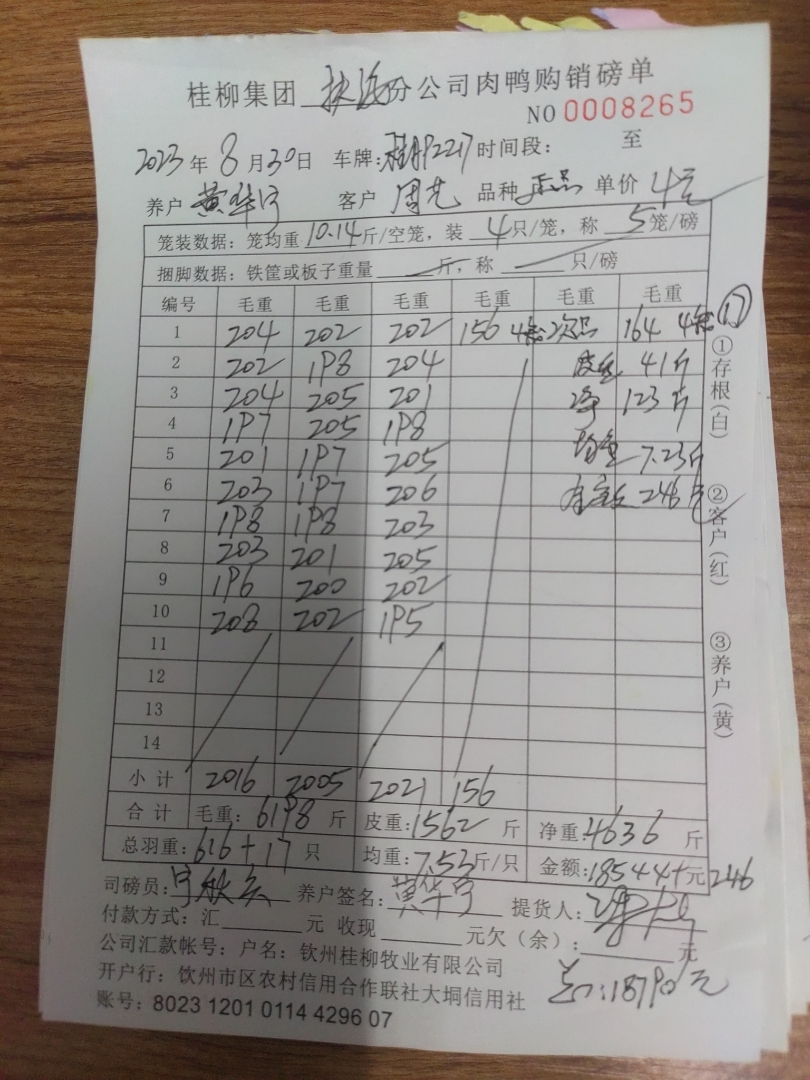 桂柳集团 分公司肉鸭购销磅单
NO 0008265
2023年8月30日 车牌: P2217 时间段: 至
养户 黄华宇 客户 周 品种 正品 单价 4元
笼装数据: 笼均重 10.14 斤/空笼, 装 4 只/笼, 称 5 笼/磅
捆脚数据: 铁筐或板子重量 斤, 称 只/磅
编号 毛重 毛重 毛重 毛重 毛重 毛重
1 204 202 202 156 4笼 次品 164 4笼 17
2 202 198 204 皮重 41斤
3 204 205 201 净 123斤
4 197 205 198
5 201 197 205 均重 7.23斤
6 203 197 206 246元
7 198 198 203
8 203 201 205
9 196 200 202
10 208 202 195
11
12
13
14
小计 2016 2005 2021 156
合计 毛重: 6198 斤 皮重: 1562 斤 净重: 4636 斤
总羽重: 616+17 只 均重: 7.53 斤/只 金额: 18544+ 元 246
司磅员: 养户签名: 黄华宇 提货人:
付款方式: 汇 元 收现 元欠(余): 元
公司汇款帐号: 户名: 钦州桂柳牧业有限公司
开户行: 钦州市区农村信用合作联社大垌信用社
账号: 8023 1201 0114 4296 07
:18790元
①存根(白) ②客户(红) ③养户(黄)